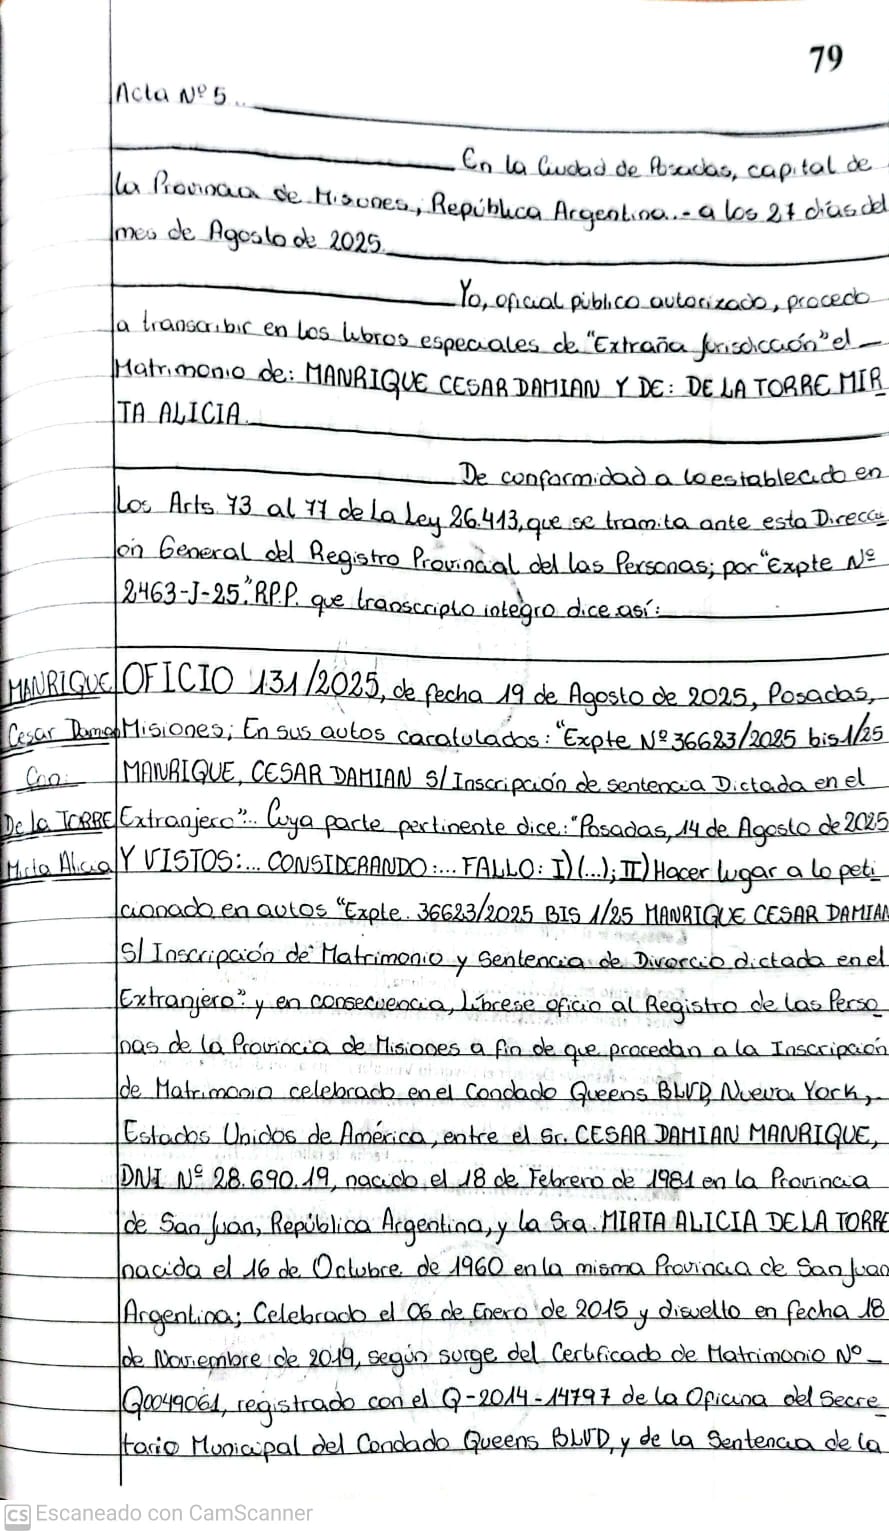 79
Acta Nº 5..
En la Ciudad de Posadas, capital de
la Provincia de Misiones, República Argentina.- a los 27 días del
mes de Agosto de 2025.
Yo, oficial público autorizado, procedo
a transcribir en los libros especiales de "Extraña Jurisdicción" el —
Matrimonio de: MANRIQUE CESAR DAMIAN Y DE: DE LA TORRE MIR
TA ALICIA.
De conformidad a lo establecido en
Los Arts. 73 al 77 de La Ley 26.413, que se tramita ante esta Direcci
ón General del Registro Provincial del las Personas; por "Expte Nº
2463-J-25". R.P.P. que transcripto integro dice así:
MANRIQUE OFICIO 131/2025, de fecha 19 de Agosto de 2025, Posadas,
Cesar Damian Misiones; En sus autos caratulados: "Expte Nº 36623/2025 bis 1/25
Con: MANRIQUE, CESAR DAMIAN S/ Inscripción de sentencia Dictada en el
De la TORRE Extranjero".. Cuya parte pertinente dice: "Posadas, 14 de Agosto de 2025
Mirta Alicia Y VISTOS:... CONSIDERANDO:... FALLO: I) (...); II) Hacer lugar a lo peti
cionado en autos "Expte. 36623/2025 BIS 1/25 MANRIQUE CESAR DAMIAN
S/ Inscripción de Matrimonio y Sentencia de Divorcio dictada en el
Extranjero" y en consecuencia, líbrese oficio al Registro de las Perso
nas de la Provincia de Misiones a fin de que procedan a la Inscripción
de Matrimonio celebrado en el Condado Queens BLVD, Nueva York,.
Estados Unidos de América, entre el Sr. CESAR DAMIAN MANRIQUE,
DNI Nº 28.690.19, nacido el 18 de Febrero de 1981 en la Provincia
de San Juan, República Argentina, y la Sra. MIRTA ALICIA DE LA TORRE
nacida el 16 de Octubre de 1960 en la misma Provincia de San Juan
Argentina; Celebrado el 06 de Enero de 2015 y disuelto en fecha 18
de Noviembre de 2019, según surge del Certificado de Matrimonio Nº —
Q0049061, registrado con el Q-2014-14797 de la Oficina del Secre
tario Municipal del Condado Queens BLVD, y de la Sentencia de la
CS Escaneado con CamScanner